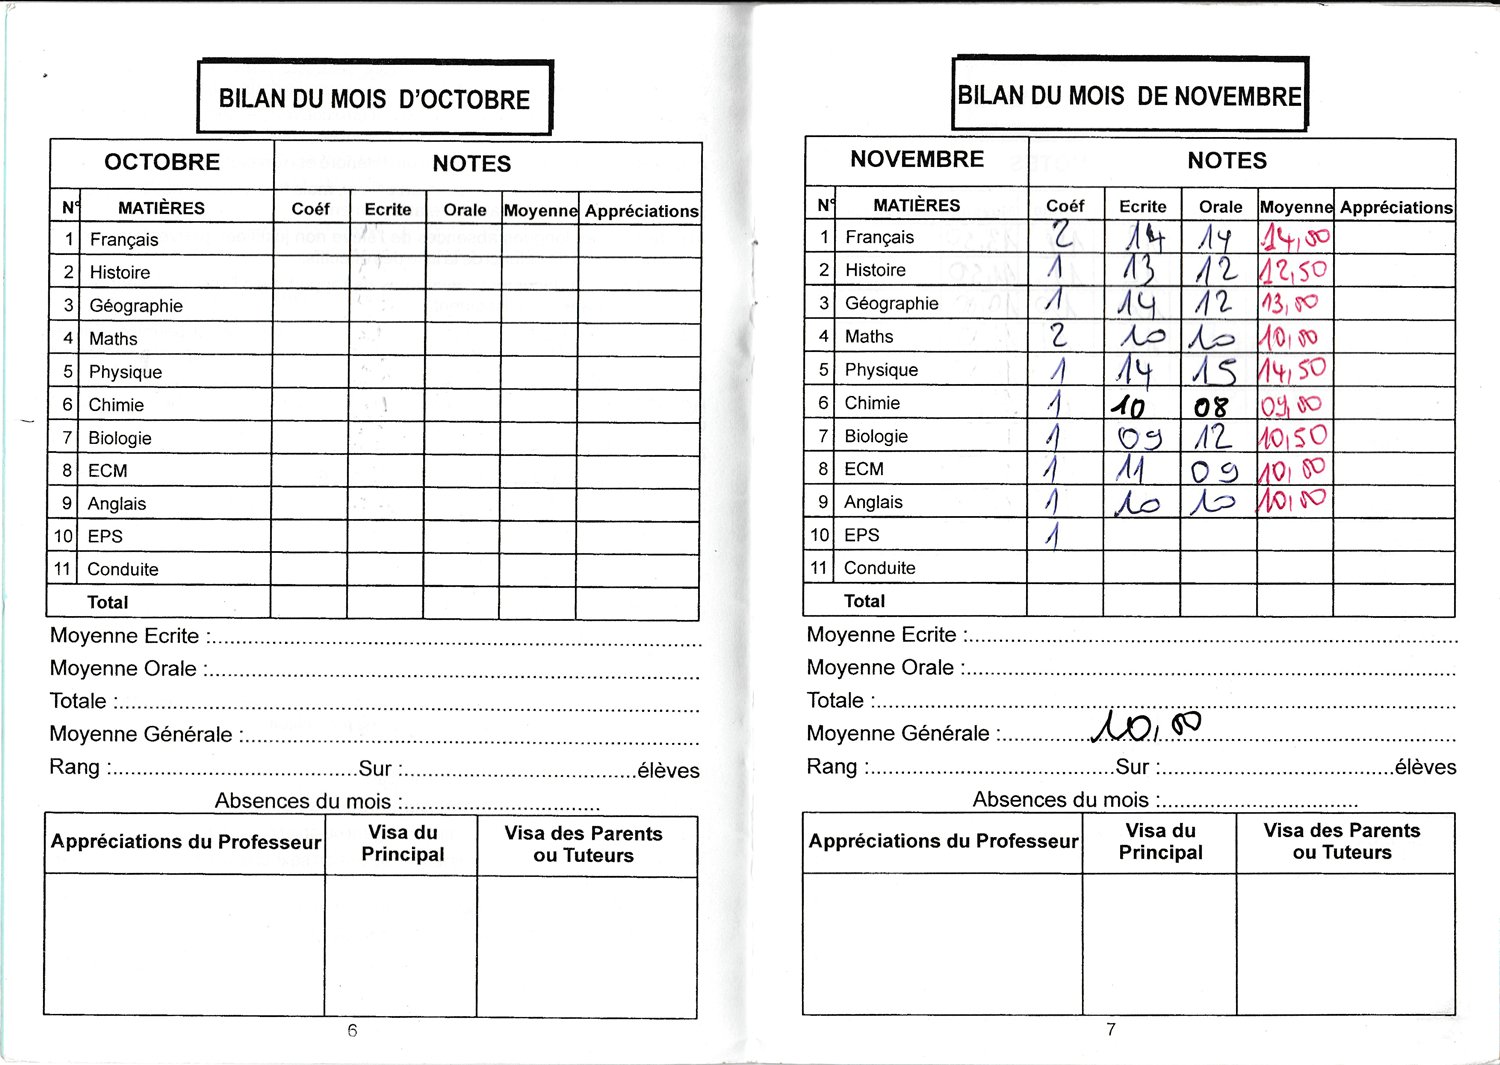 BILAN DU MOIS D'OCTOBRE
OCTOBRE NOTES
N° MATIÈRES Coéf Ecrite Orale Moyenne Appréciations
1 Français
2 Histoire
3 Géographie
4 Maths
5 Physique
6 Chimie
7 Biologie
8 ECM
9 Anglais
10 EPS
11 Conduite
Total
Moyenne Ecrite :
Moyenne Orale :
Totale :
Moyenne Générale :
Rang : Sur : élèves
Absences du mois :
Appréciations du Professeur Visa du Principal Visa des Parents ou Tuteurs
6
BILAN DU MOIS DE NOVEMBRE
NOVEMBRE NOTES
N° MATIÈRES Coéf Ecrite Orale Moyenne Appréciations
1 Français 2 14 14 14,00
2 Histoire 1 13 12 12,50
3 Géographie 1 14 12 13,00
4 Maths 2 10 10 10,00
5 Physique 1 14 15 14,50
6 Chimie 1 10 08 09,00
7 Biologie 1 09 12 10,50
8 ECM 1 11 09 10,00
9 Anglais 1 10 10 10,00
10 EPS 1
11 Conduite
Total
Moyenne Ecrite :
Moyenne Orale :
Totale :
Moyenne Générale : 10,00
Rang : Sur : élèves
Absences du mois :
Appréciations du Professeur Visa du Principal Visa des Parents ou Tuteurs
7